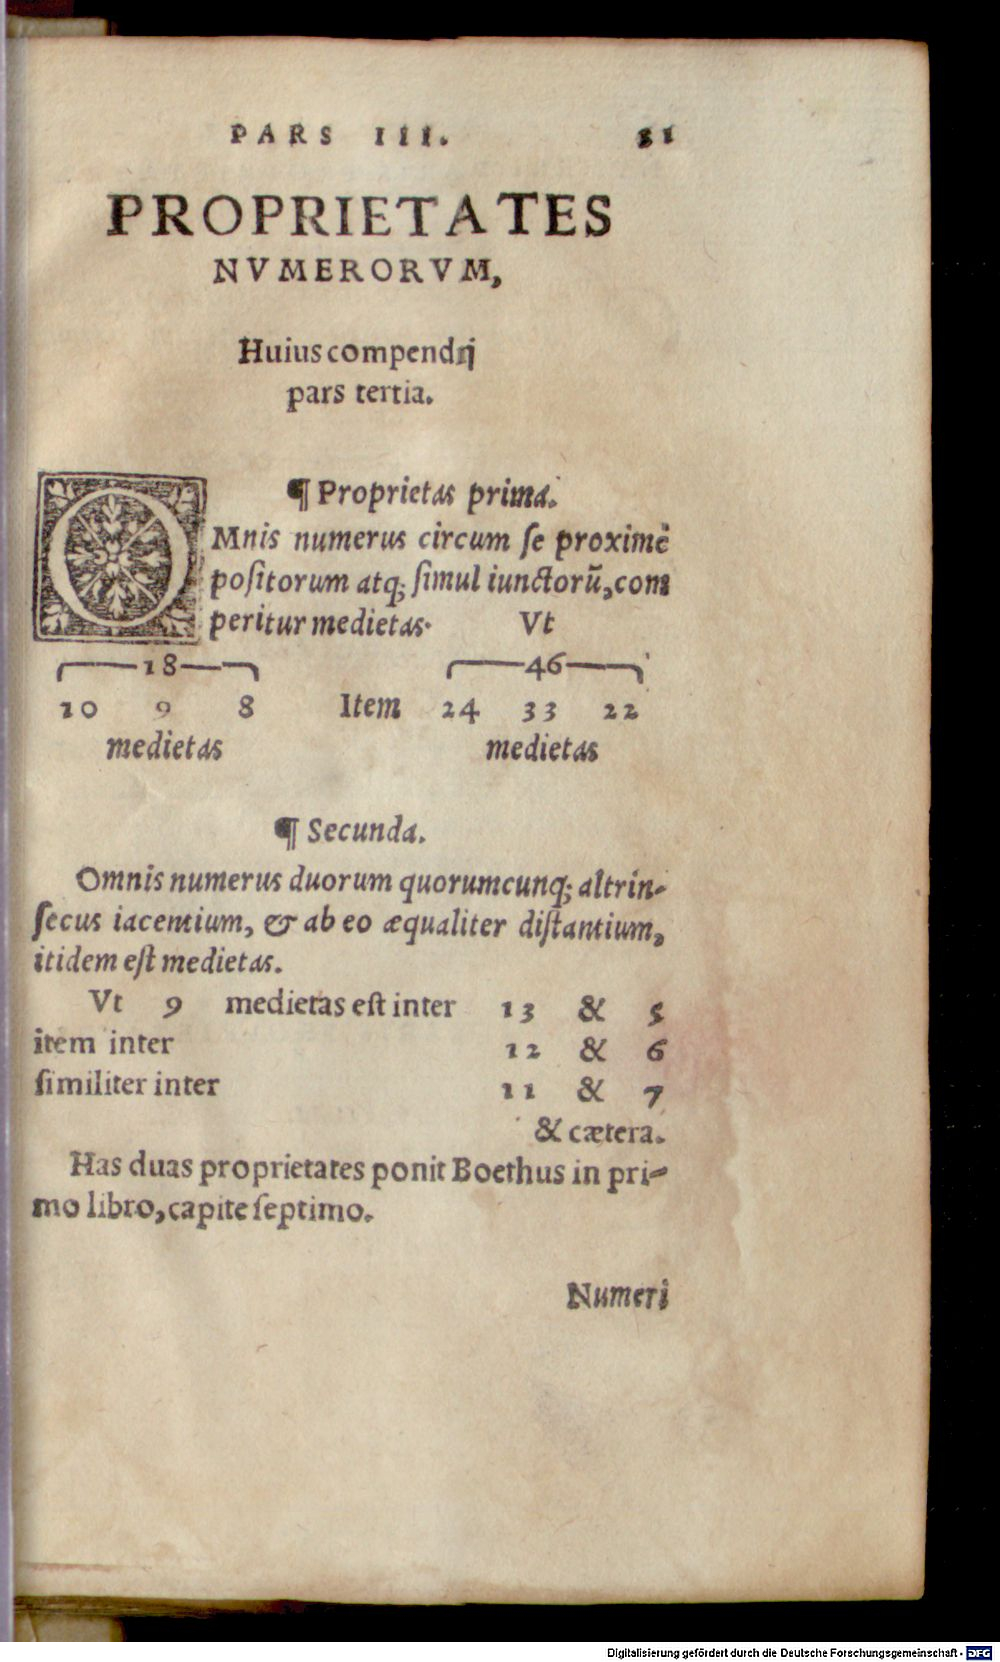 PARS III. 31
PROPRIETATES
NVMERORVM,
Huius compendij
pars tertia.
¶ Proprietas prima.
OMnis numerus circum se proximè
positorum atq; simul iunctorū, com
peritur medietas. Vt
18 46
10 9 8 Item 24 33 22
medietas medietas
¶ Secunda.
Omnis numerus duorum quorumcunq; altrin-
secus iacentium, & ab eo æqualiter distantium,
itidem est medietas.
Vt 9 medietas est inter 13 & 5
item inter 12 & 6
similiter inter 11 & 7
& cætera.
Has duas proprietates ponit Boethus in pri-
mo libro, capite septimo.
Numeri
Digitalisierung gefördert durch die Deutsche Forschungsgemeinschaft - DFG